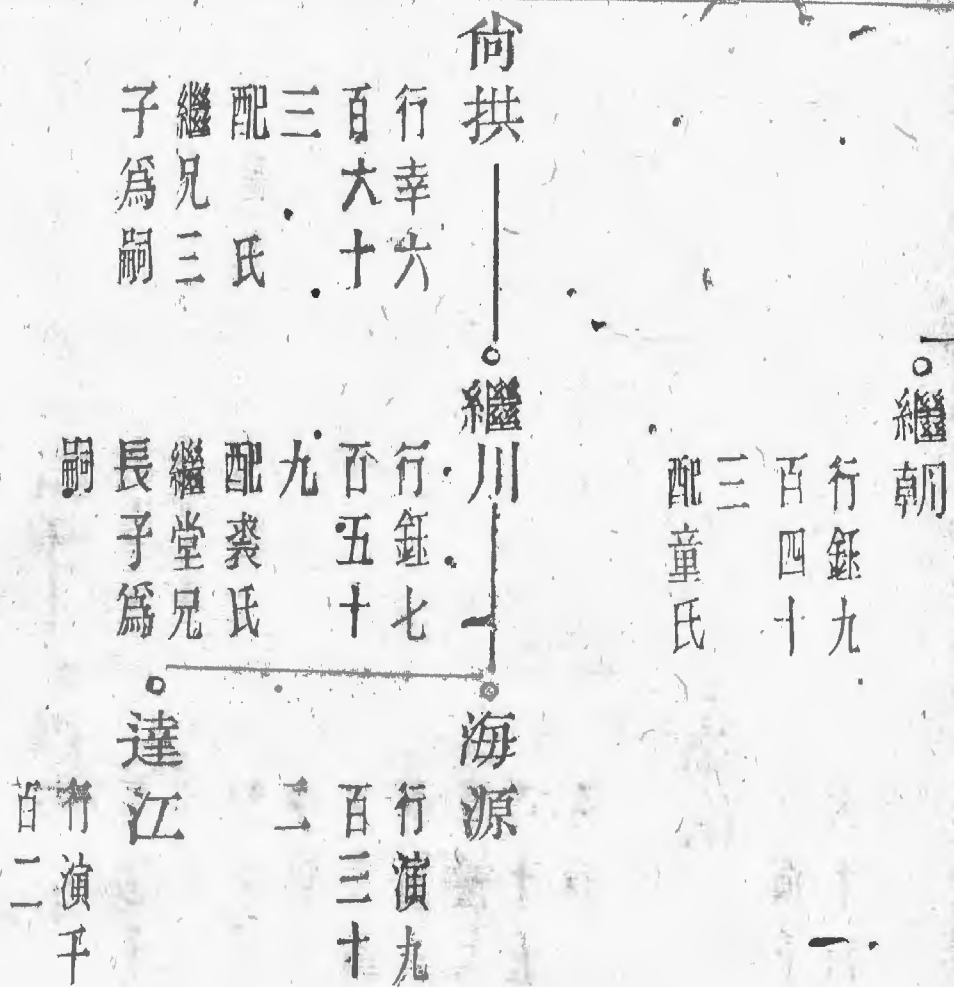 繼朝
行鉅九
百四十
三
配童氏
尙拱
行幸六
百六十
三
配　氏
繼兄三
子爲嗣
繼川
行鉅七
百五十
九
配裘氏
繼堂兄
長子爲
嗣
海源
行演九
百三十
二
達江
行演千
百二